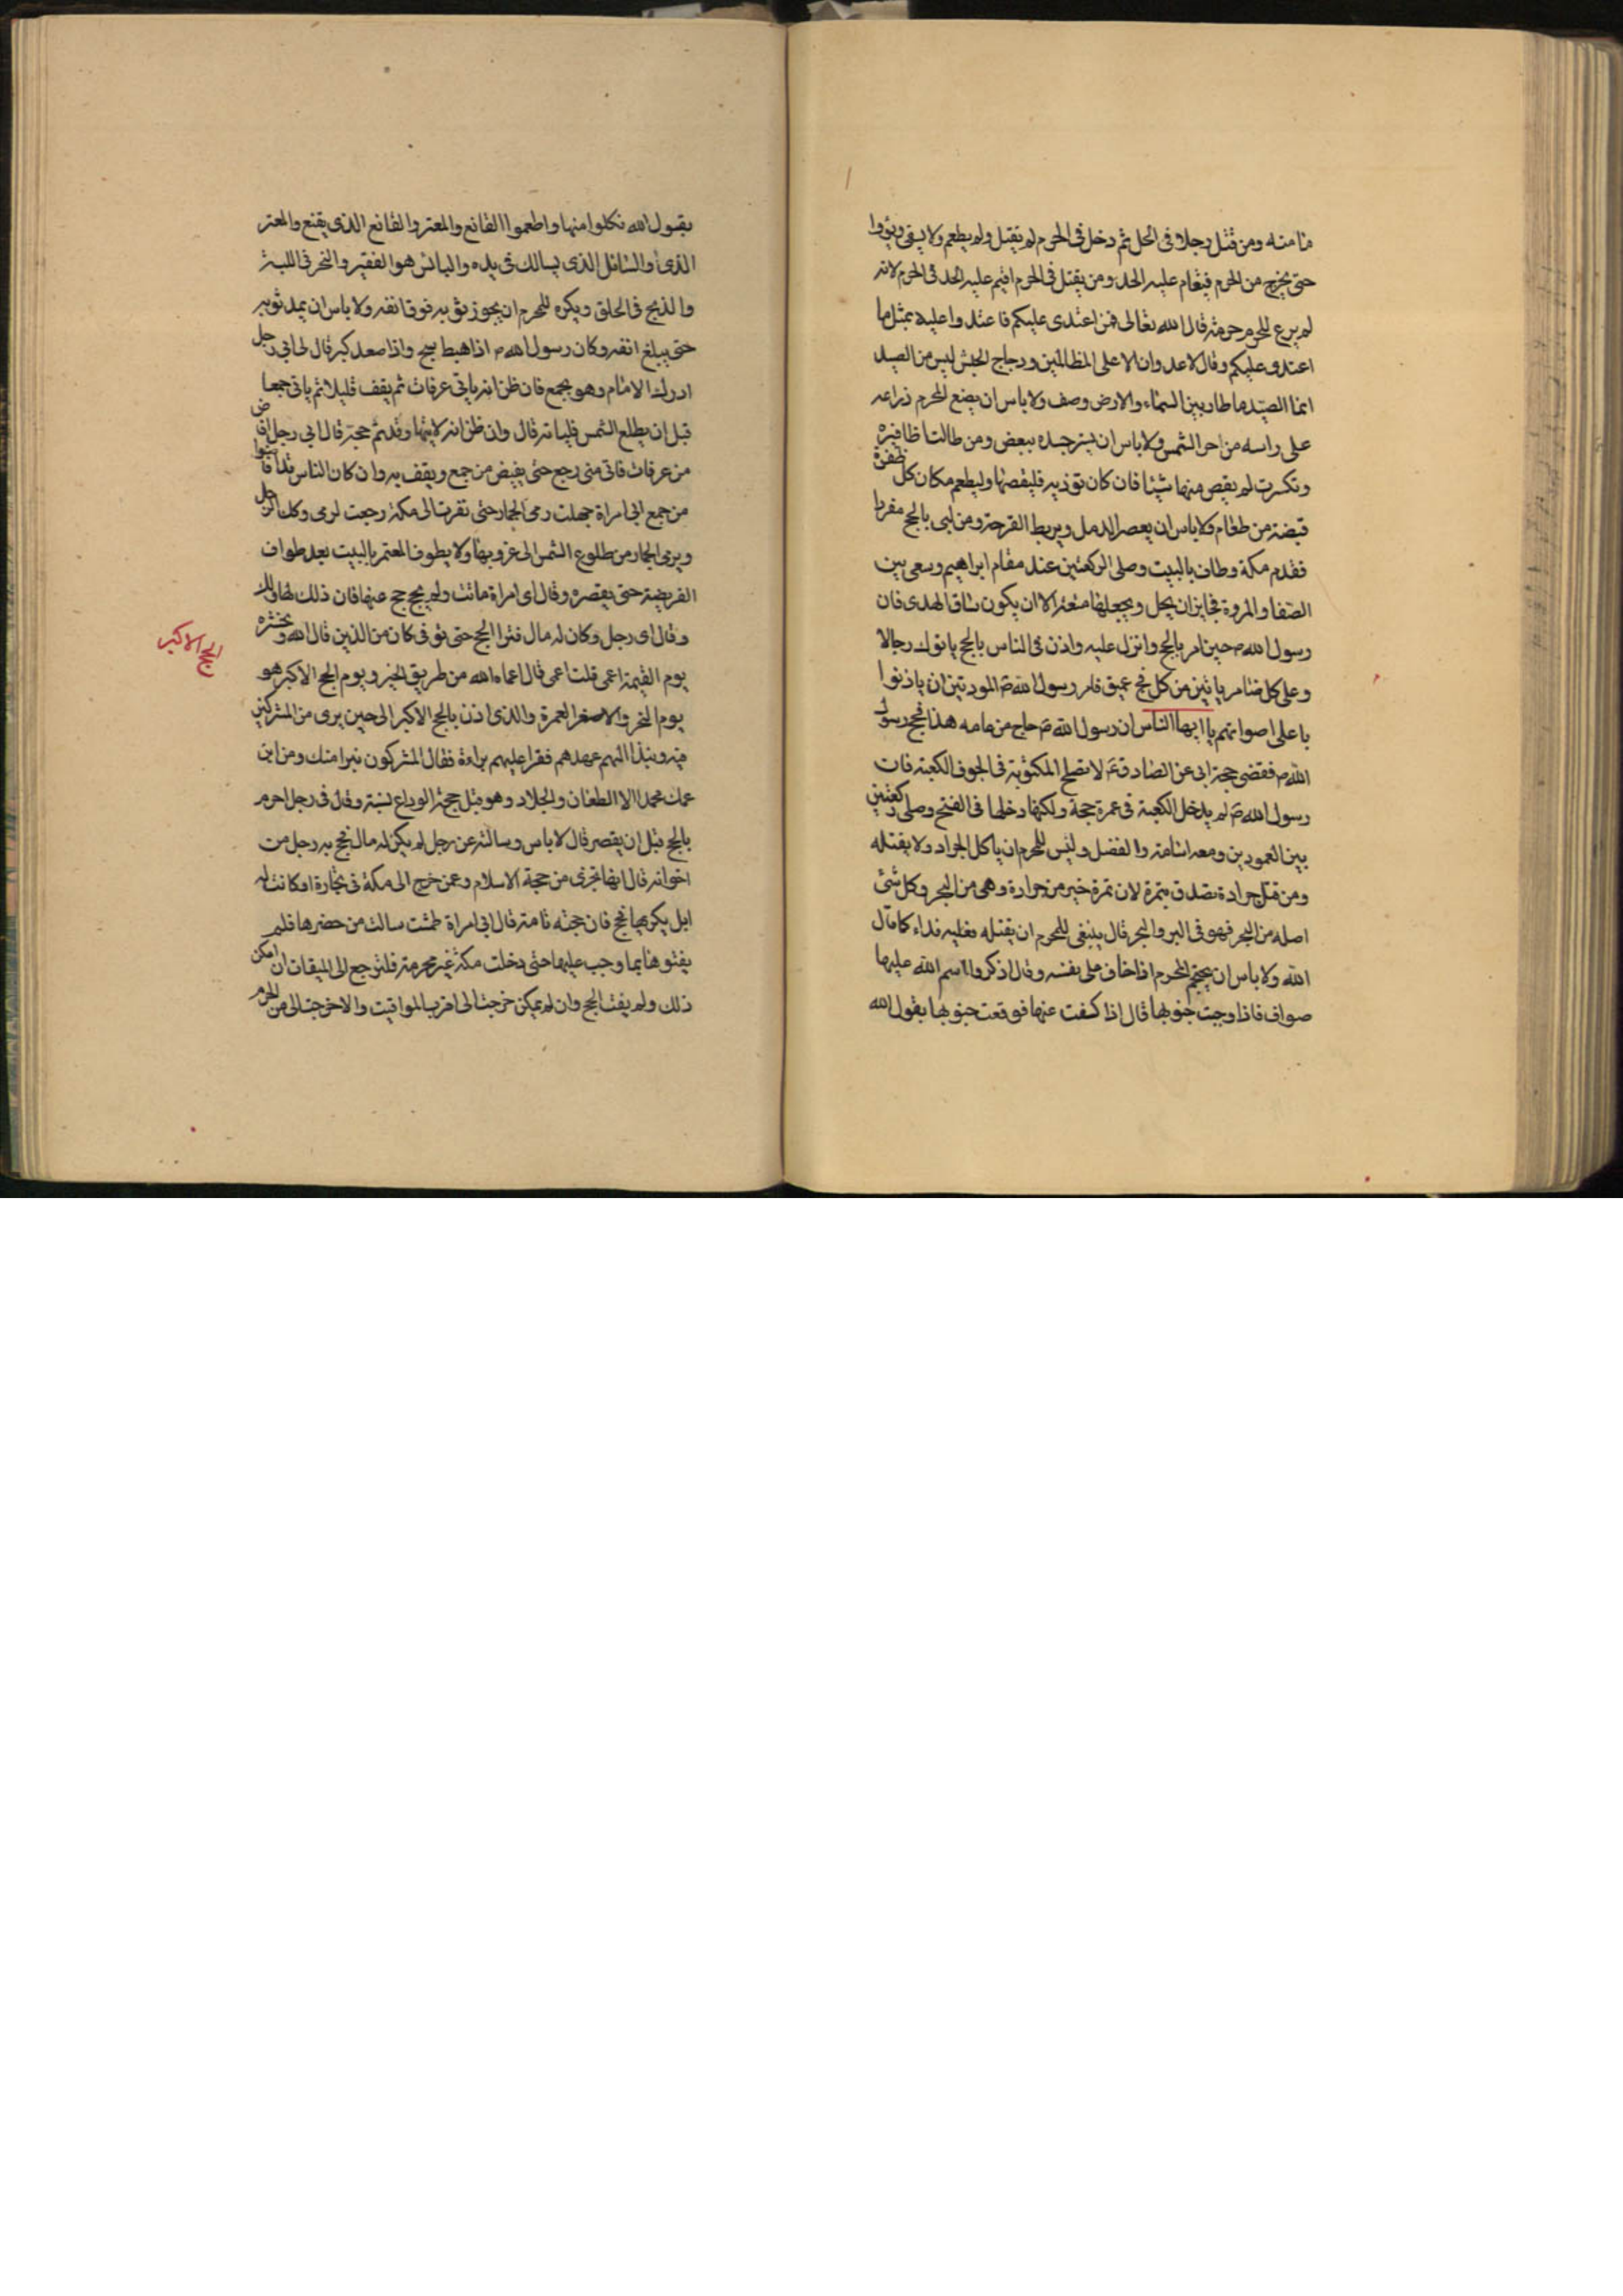 ثامنه ومن قتل رجلا فى الحل ثم دخل فى الحرم لم يقتل ولم يطعم ولا يسقى ويؤوا
حتى يخرج من الحرم فيقام عليه الحد ومن يقتل فى الحرم اقيم عليه الحد فى الحرم لانه
لم يرع للحرم حرمة قال الله تعالى فمن اعتدى عليكم فاعتدوا عليه بمثل ما
اعتدى عليكم وقال لا عدوان الا على الظالمين ودجاج الحبش ليس من الصيد
انما الصيد ما طار بين السماء والارض وصف ولا باس ان يضع المحرم ذراعه
على راسه من حر الشمس ولا باس ان يستر جسده ببعض ومن طالت اظافيره
وتكسرت لم يقص منها شيئا فان كان تؤذيه فليقصها وليطعم مكان كل ظفره
قبضة من طعام ولا باس ان يعصر الدمل ويربط القرحة ومن لبى بالحج مفردا
فقدم مكة وطاف بالبيت وصلى الركعتين عند مقام ابراهيم وسعى بين
الصفا والمروة فجايز ان يحل ويجعلها متعة الا ان يكون ساق الهدى فان
رسول الله ص حين امر بالحج وانزل عليه واذن فى الناس بالحج ياتوك رجالا
وعلى كل ضامر ياتين من كل فج عميق فامر رسول الله ص الموذنين ان ياذنوا
باعلى اصواتهم يا ايها الناس ان رسول الله ص حاج من عامه هذا فحج رسول
الله ص فقضى حجة ابى عن الصادق ع لا تصلح المكتوبة فى الجوف الكعبة فان
رسول الله ص لم يدخل الكعبة فى عمرة حجة ولكنها دخلها فى الفتح وصلى ركعتين
بين العمودين ومعه اسامة والفضل وليس للمحرم ان ياكل الجراد ولا يقتله
ومن قتل جرادة تصدق بتمرة لان تمرة خير من جرادة وهى من البحر وكل شئ
اصله من البحر فهو فى البر والبحر قال ينبغى للمحرم ان يقتله فعليه فداء كما قال
الله ولا باس ان يحتجم المحرم اذا خاف على نفسه وقال اذكروا اسم الله عليها
صواف فاذا وجبت جنوبها قال اذا كشفت عنها فوقعت جنوبها يقول الله
يقول الله فكلوا منها واطعموا القانع والمعتر والقانع الذى يقنع والمعتر
الذى والسائل الذى يسالك فى يده والبائس هو الفقير والنحر فى اللبة
والذبح فى الحلق ويكره للمحرم ان يجوز ثوبه فوق انفه ولا باس ان يمد ثوبه
حتى يبلغ انفه وكان رسول الله ص اذا هبط سبح واذا صعد كبر قال لى ابى رجل
ادرك الامام وهو بجمع فان ظن انه ياتى عرفات ثم يقف قليلا ثم ياتى جمعا
قبل ان يطلع الشمس فلياته قال وان ظن انه لا ياتيها وقد تم حجة قال ابى رجل افاض
من عرفات فاتى منى رجع حتى يفيض من جمع ويقف به وان كان الناس قد افاضوا
من جمع ابى امراة جهلت رمى الجمار حتى نفرت الى مكة رجعت لرمى وكذلك الرجل
ويرمى الجمار من طلوع الشمس الى غروبها ولا يطوف المعتمر بالبيت بعد طواف
الفريضة حتى يقصره وقال اى امراة ماتت ولم يحج حج عنها فان ذلك لها ولك
وقال اى رجل وكان له مال فترا الحج حتى توفى كان من الذين قال الله ونحشره
يوم القيمة اعمى قلت اعمى قال اعماه الله من طريق الخير ويوم الحج الاكبر هو
الحج الاكبر
يوم النحر والاصغر العمرة والذى اذن بالحج الاكبر الى حين برى من المشركين
فيه ونبذا اليهم عهدهم فقرا عليهم براءة فقال المشركون نبرا منك ومن ابن
عمك محمدا الا الطعان والجلاد وهو قبل حجة الوداع بسنة وقال فى رجل احرم
بالحج قبل ان يقصر قال لا باس وسالته عن رجل لم يكن له مال فحج به رجل من
اخوانه قال انها تجزى من حجة الاسلام وعن خرج الى مكة فى تجارة او كانت له
ابل يكريها فحج فان حجته تامة قال ابى امراة طمثت سالت من حضرها فلم
يفتوها بما وجب عليها حتى دخلت مكة غير محرمة فلترجع الى الميقات ان امكن
ذلك ولم يفت الحج وان لم يمكن خرجت الى اقرب المواقيت والا خرجت الى من الحرم